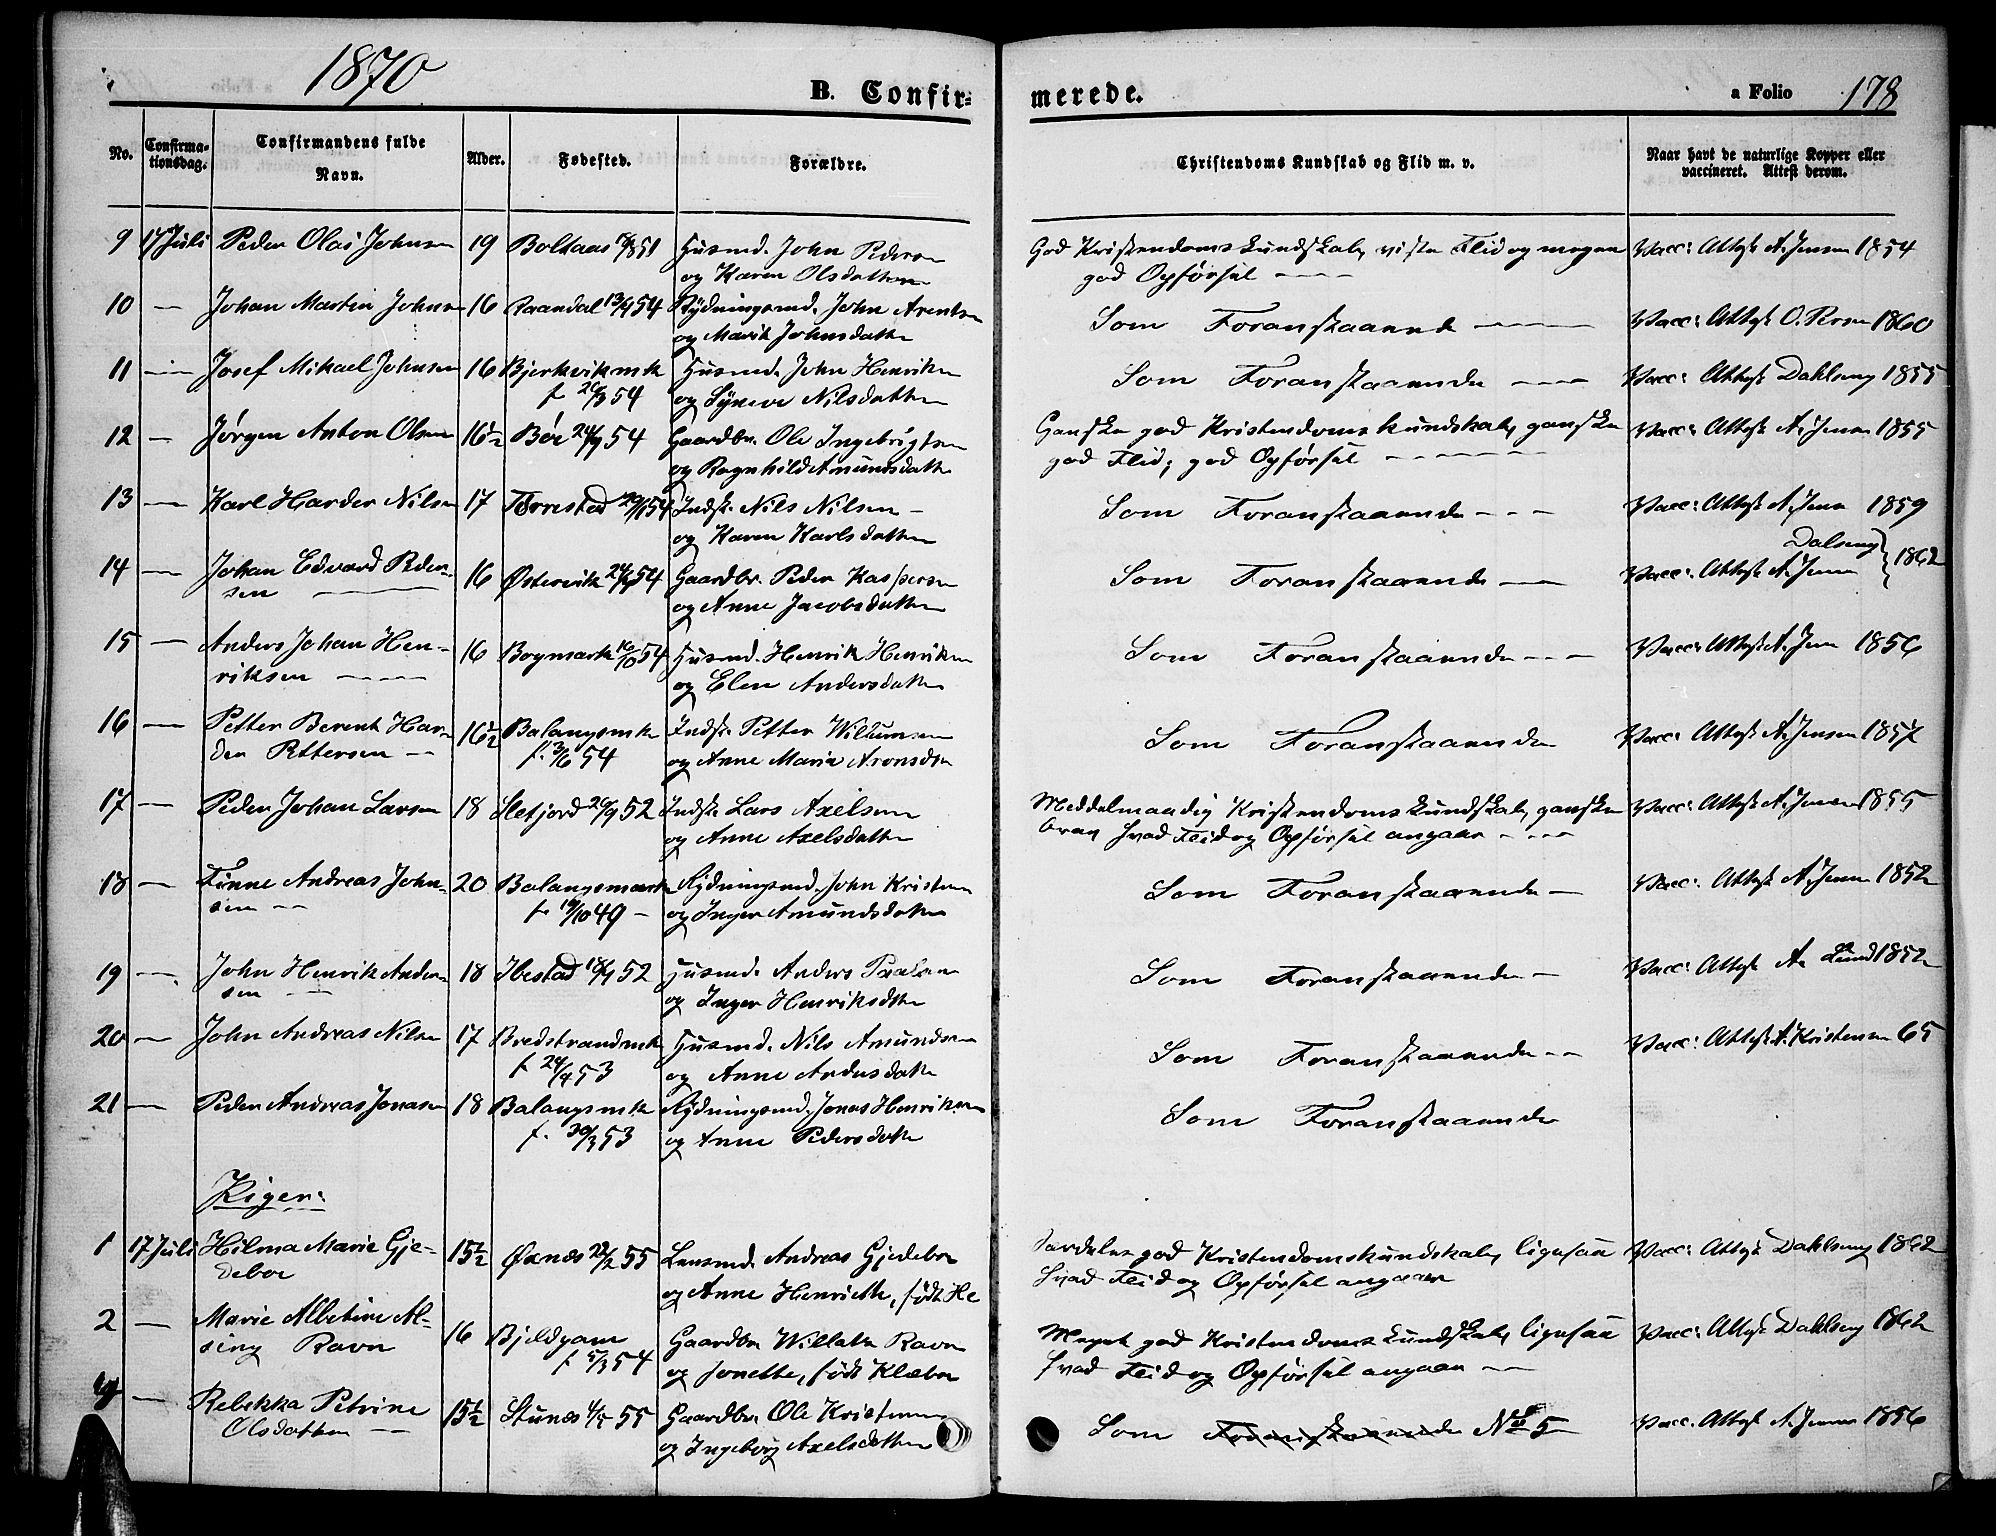 1870
B. Confir- merede.
a Folio 178
No.
Confirma-
tionsdag.
Confirmandens fulde
Navn.
Alder.
Fødested.
Forældre.
Christendoms Kundskab og Flid m. v.
Naar havt de naturlige Kopper eller
vaccineret. Attest derom.
9 17 Juli Peder Olai Johnsen 19 Boltaas 51 Husmd. John Pedersen God Kristendomskundskab, Flid og megen Vacc: Attest A. Jensen 1854
og Karen Olsdatter god Opførsel
10 — Johan Martin Johnsen 16 Raandal 13/9 54 Rydningsmd. John Arentsen Som Foranstaaende Vacc: Attest O. Persen 1860
og Marit Johnsdatter
11 — Josef Mikael Johnsen 16 Bjerkvikmk Husmd. John Henriksen Som Foranstaaende Vacc: Attest Dahlseng 1855
f 54 og Synneve Nilsdatter
12 — Jørgen Anton Olsen 16½ Bøe 24/9 54 Gaardbr. Ole Ingebrigtsen Ganske god Kristendomskundskab, ganske Vacc: Attest A. Jensen 1855
og Ragnhild Amundsdatter god Flid, god Opførsel
13 — Karl Harder Nilsen 17 Tørrestad 54 Indst. Nils Nilsen Som Foranstaaende Vacc: Attest A. Jensen 1859
og Karen Karlsdatter
14 — Johan Edvard Peder- 16 Østervik 54 Gaardbr. Peder Kaspersen Som Foranstaaende Vacc: Attest A. Jensen Dalseng 1862
sen og Anne Jacobsdatter
15 — Anders Johan Hen- 16 Bogmark 54 Husmd. Henrik Henriksen Som Foranstaaende Vacc: Attest A. Jensen 1856
riksen og Elen Andersdatter
16 — Petter Berent Har- 16½ Balangsmk Indst. Petter Willumsen Som Foranstaaende Vacc: Attest A. Jensen 1857
der Pettersen f. 3/6 54 og Anne Maria Aronsdtr
17 — Peder Johan Larsen 18 Sletjord 52 Indst. Lars Axelsen Meddelmaadig Kristendomskundskab, ganske Vacc: Attest A. Jensen 1855
og Anne Axelsdatter brav hvad Flid og Opførsel angaar
18 — Finne Andreas John- 20 Balangsmark Rydningsmd. John Kristensen Som Foranstaaende Vacc: Attest A. Jensen 1852
sen f. 19/10 49 og Inger Amundsdatter
19 — John Henrik Ander- 18 Ibestad 52 Husmd. Anders Som Foranstaaende Vacc: Attest A. Lund 1852
sen og Inger Henriksdtr
20 — John Andreas Nilsen 17 Bredstrandmk Husmd. Nils Amundsen Som Foranstaaende Vacc: Attest A. Kristensen 65
f 24/4 53 og Anne Andersdatter
21 — Peder Andreas Jonasen 18 Balangsmk Rydningsmd. Jonas Henriksen Som Foranstaaende
f. 30/3 53 og Anne Pedersdatter
Piger:
1 17 Juli Hilma Marie Gje- 15½ Øxnæs 55 Lensmd. Andreas Gjedebo Særdeles god Kristendomskundskab, ligesaa Vacc: Attest Dahlseng 1862
debor og Anne Henriette, født He hvad Flid og Opførsel angaar
2 — Marie Albertine Al- 16 Bjeldgam Gaardbr Willatz Ravn Meget god Kristendomskundskab, ligesaa Vacc: Attest Dahlseng 1862
sing Ravn f 5/3 54 og Jonette, født Klæbo hvad Flid og Opførsel angaar
— Rebekka Petrine 15½ Stunes 55 Gaardbr. Ole Kristensen Som Foranstaaende No 5 Vacc. Attest A. Jensen 1856
Olsdatter og Ingeborg Axelsdatter